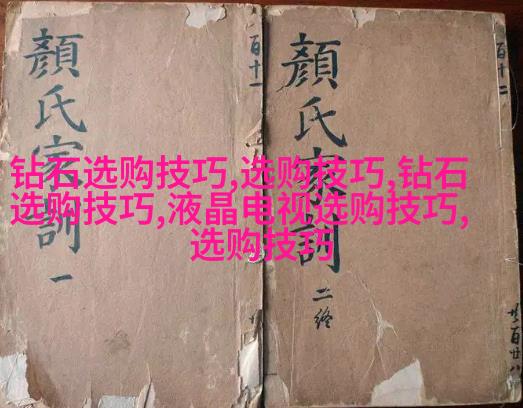 顏氏家訓 一
百十一
顏氏家訓 二終
百十二
钻石选购技巧,选购技巧,钻石
选购技巧,液晶电视选购技巧,
选购技巧